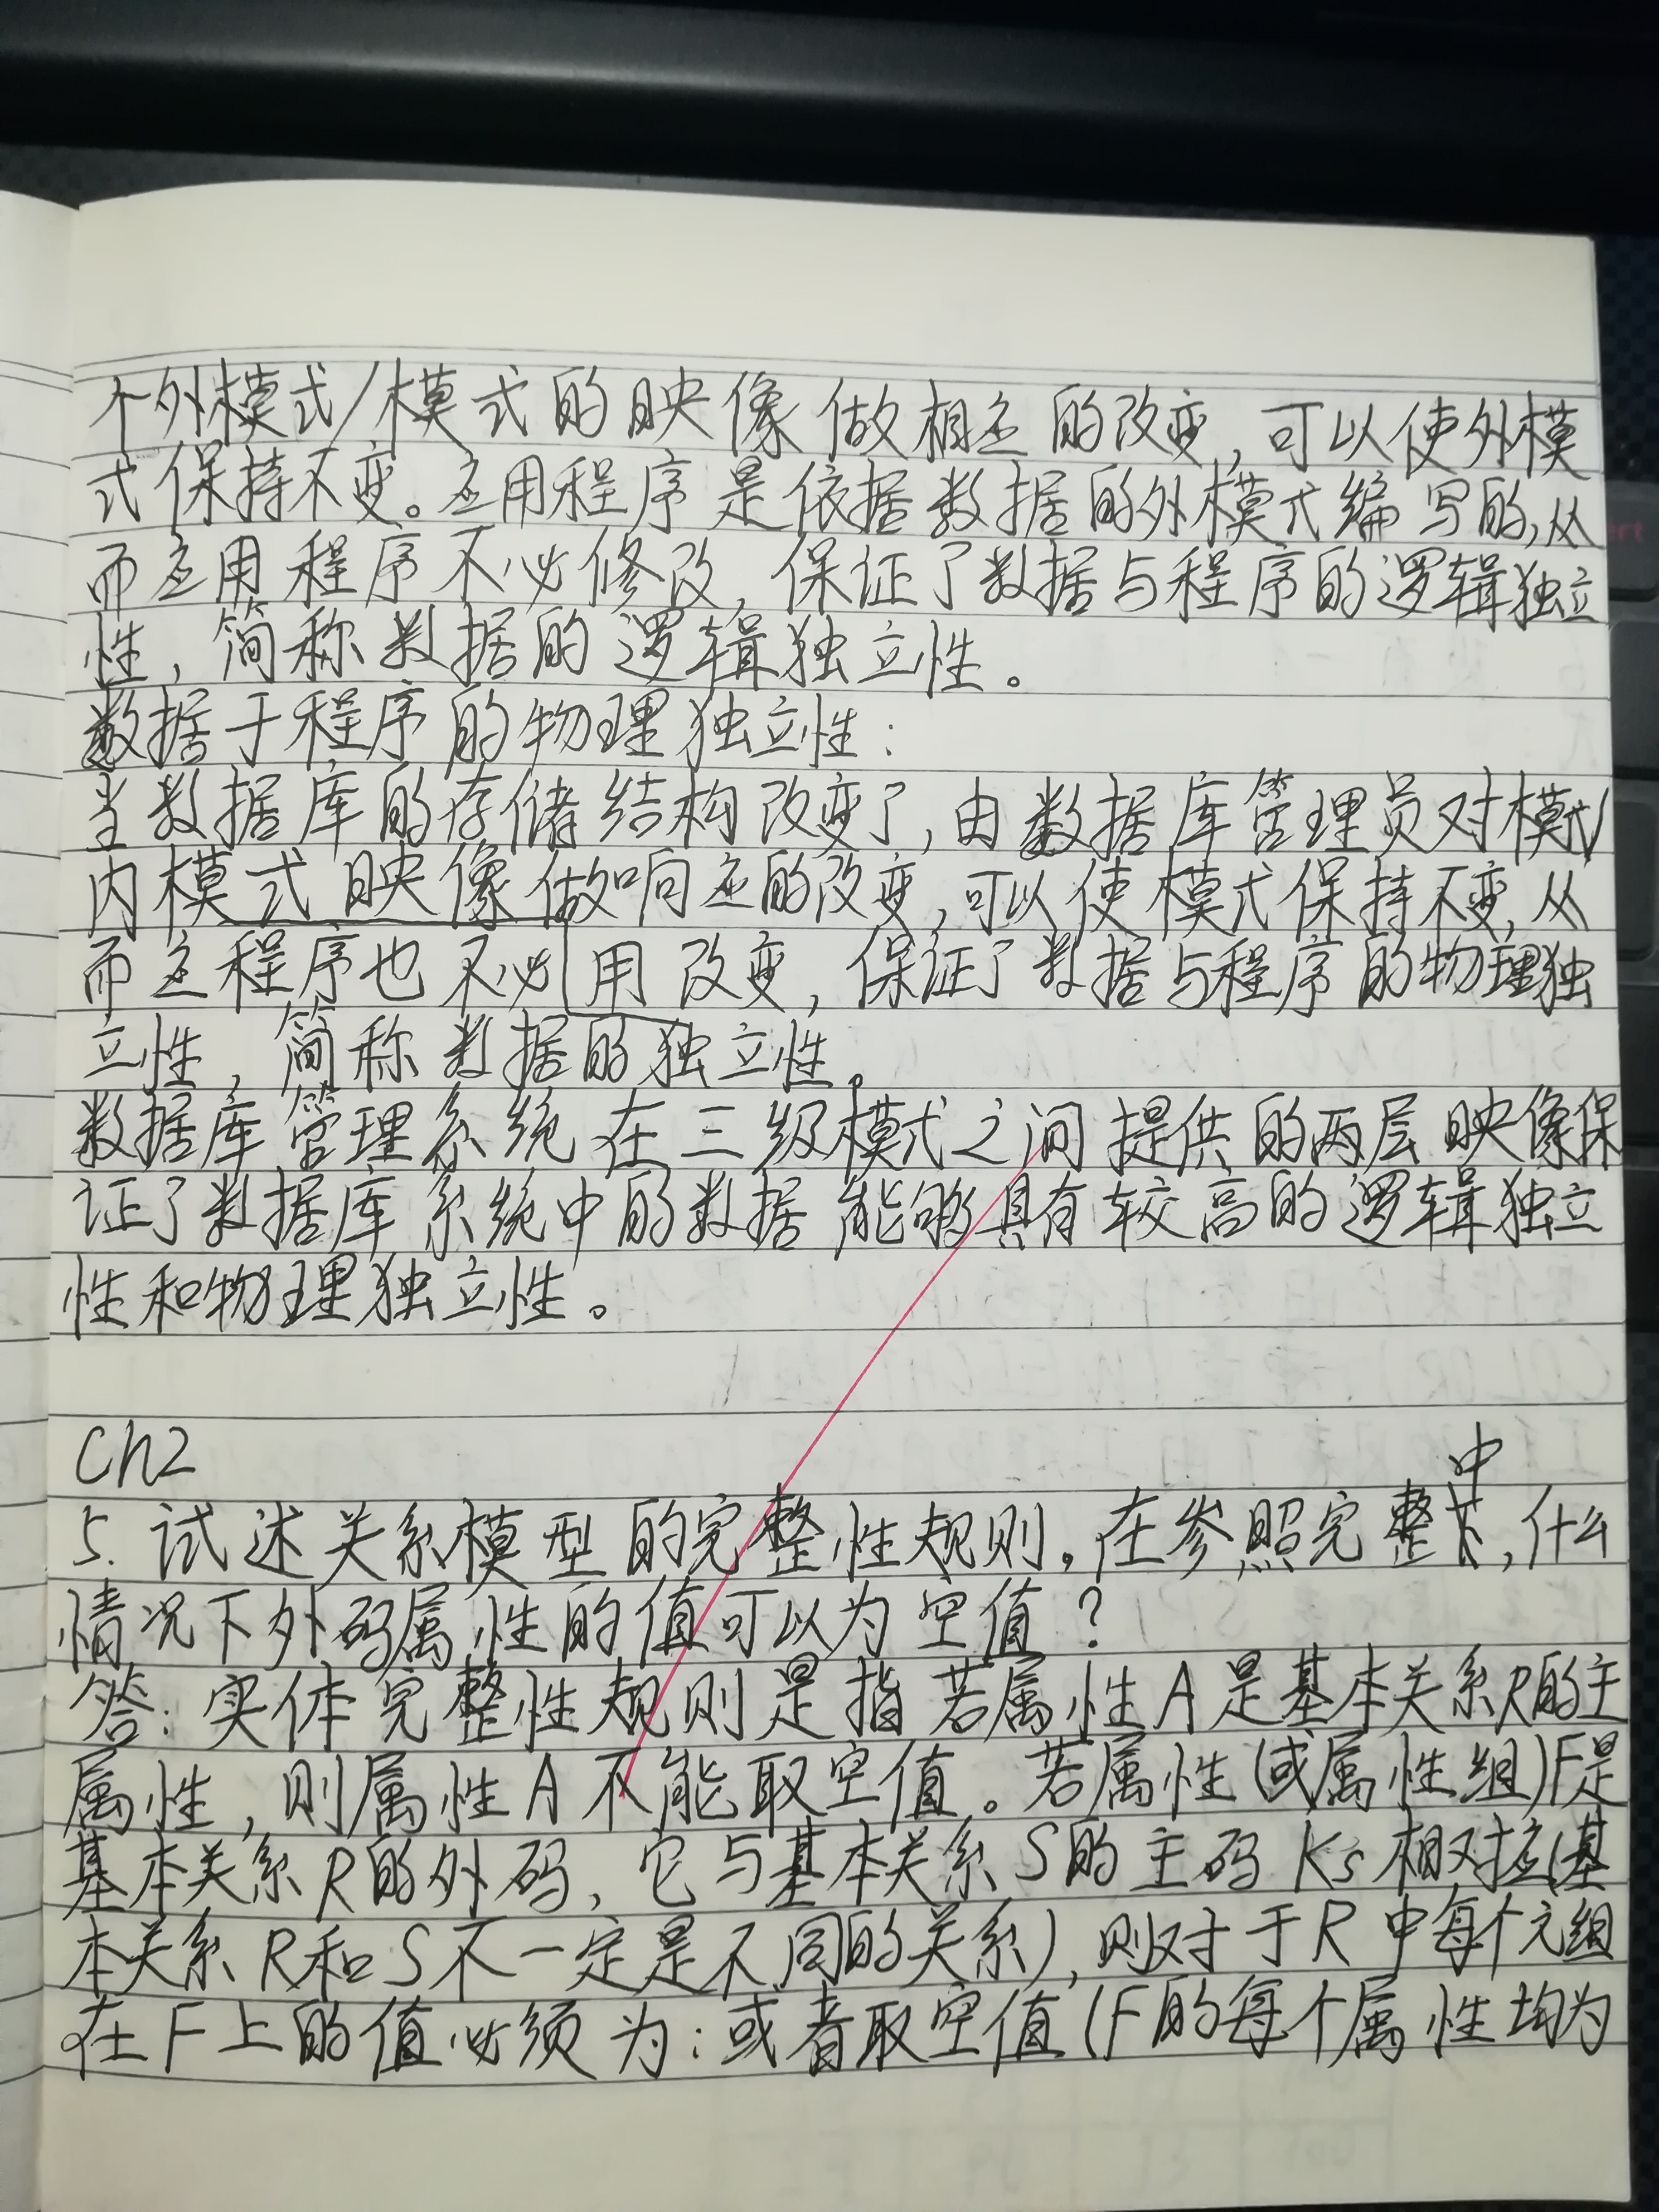 个外模式/模式的映像做相应的改变,可以使外模
式保持不变。应用程序是依据数据的外模式编写的,从
而应用程序不必修改,保证了数据与程序的逻辑独立
性,简称数据的逻辑独立性。
数据于程序的物理独立性:
当数据库的存储结构改变了,由数据库管理员对模式/
内模式映像做响应的改变,可以使模式保持不变,从
而应程序也不必用改变,保证了数据与程序的物理独
立性,简称数据的独立性。
数据库管理系统在三级模式之间提供的两层映像保
证了数据库系统中的数据能够具有较高的逻辑独立
性和物理独立性。
Ch2
中
5.试述关系模型的完整性规则。在参照完整,什么
情况下外码属性的值可以为空值?
答:实体完整性规则是指若属性A是基本关系R的主
属性,则属性A不能取空值。若属性(或属性组)F是
基本关系R的外码,它与基本关系S的主码Ks相对应(基
本关系R和S不一定是不同的关系),则对于R中每个元组
在F上的值必须为:或者取空值(F的每个属性均为